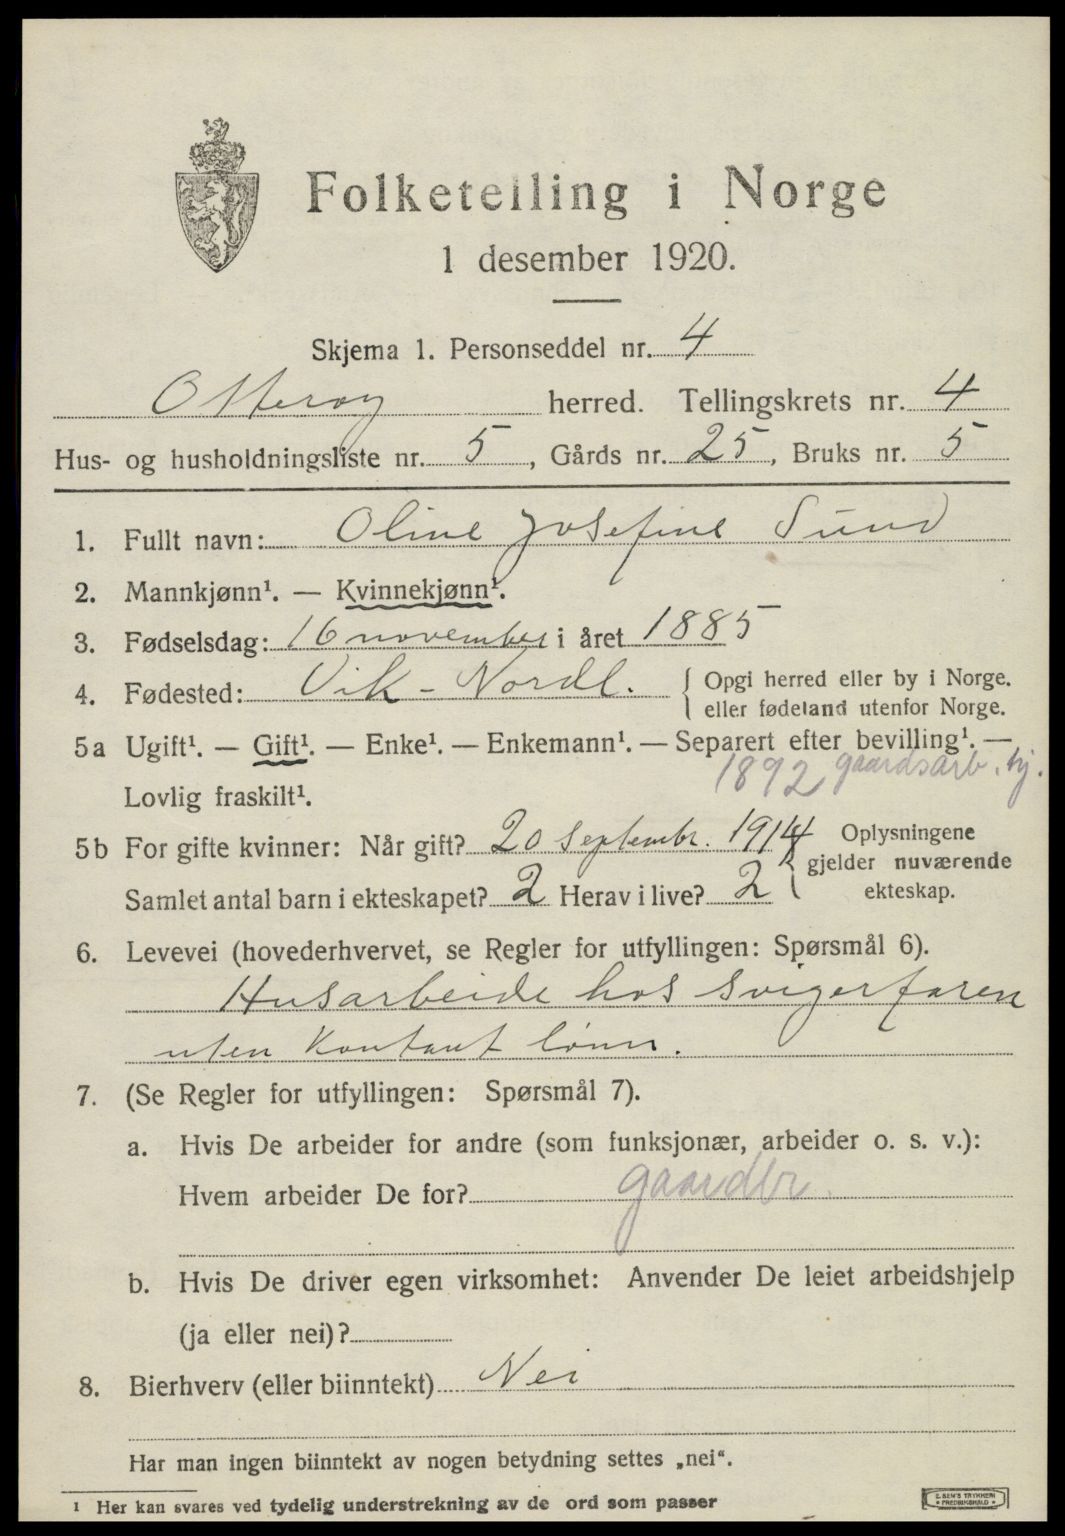 Folketelling i Norge
1 desember 1920.
Skjema 1. Personseddel nr. 4
Otterøy herred. Tellingskrets nr. 4
Hus- og husholdningsliste nr. 5, Gårds nr. 25, Bruks nr. 5
1. Fullt navn: Oline Josefine Sund
2. Mannkjønn¹. — Kvinnekjønn¹.
3. Fødselsdag: 16 november i året 1885
4. Fødested: Vik - Nordl. { Opgi herred eller by i Norge.
eller fødeland utenfor Norge.
5a Ugift¹. — Gift¹. — Enke¹. — Enkemann¹. — Separert efter bevilling¹. —
1892 gaardsarb. tj.
Lovlig fraskilt¹.
5b For gifte kvinner: Når gift? 20 septembr. 1914 { Oplysningene
gjelder nuværende
Samlet antal barn i ekteskapet? 2 Herav i live? 2 ekteskap.
6. Levevei (hovederhvervet, se Regler for utfyllingen: Spørsmål 6).
Husarbeide hos svigerfaren
uten kontant lønn.
7. (Se Regler for utfyllingen: Spørsmål 7).
a. Hvis De arbeider for andre (som funksjonær, arbeider o. s. v.):
Hvem arbeider De for? gaardbr.
b. Hvis De driver egen virksomhet: Anvender De leiet arbeidshjelp
(ja eller nei)?
8. Bierhverv (eller biinntekt) Nei
Har man ingen biinntekt av nogen betydning settes „nei“.
¹ Her kan svares ved tydelig understrekning av de ord som passer
E. SEM'S TRYKKERI
FREDRIKSHALD